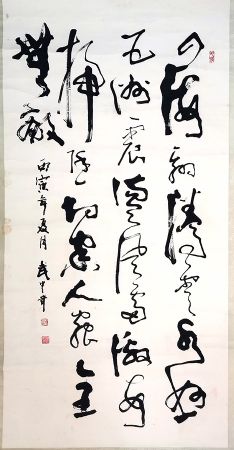 四海翻騰雲水怒
五洲震盪風雷激要
掃除一切害人蟲全
無敵
丙寅年夏月 武中奇